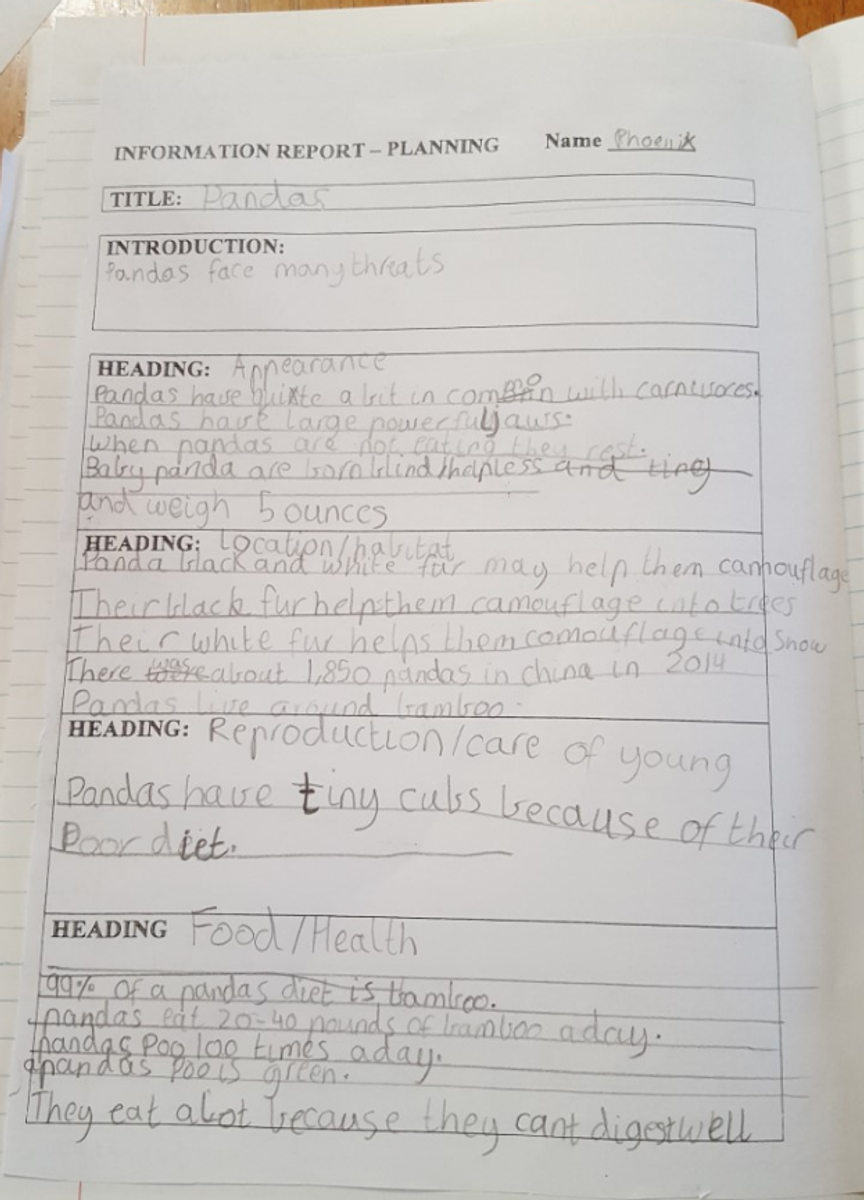 INFORMATION REPORT – PLANNING Name Phoenix
TITLE: Pandas
INTRODUCTION:
Pandas face many threats
HEADING: Appearance
Pandas have quite a bit in common with carnivores.
Pandas have large powerful jaws.
When pandas are not eating they rest.
Baby panda are born blind/helpless and tiny
and weigh 5 ounces
HEADING: Location/habitat
Panda black and white fur may help them camouflage
Their black fur helps them camouflage into trees
Their white fur helps them comouflage into snow
There was about 1,850 pandas in china in 2014
Pandas live around bamboo.
HEADING: Reproduction/care of young
Pandas have tiny cubs because of their
Poor diet.
HEADING Food/Health
99% of a pandas diet is bamboo.
pandas eat 20-40 pounds of bamboo a day.
pandas poo 100 times a day.
pandas poo is green.
They eat alot because they cant digest well